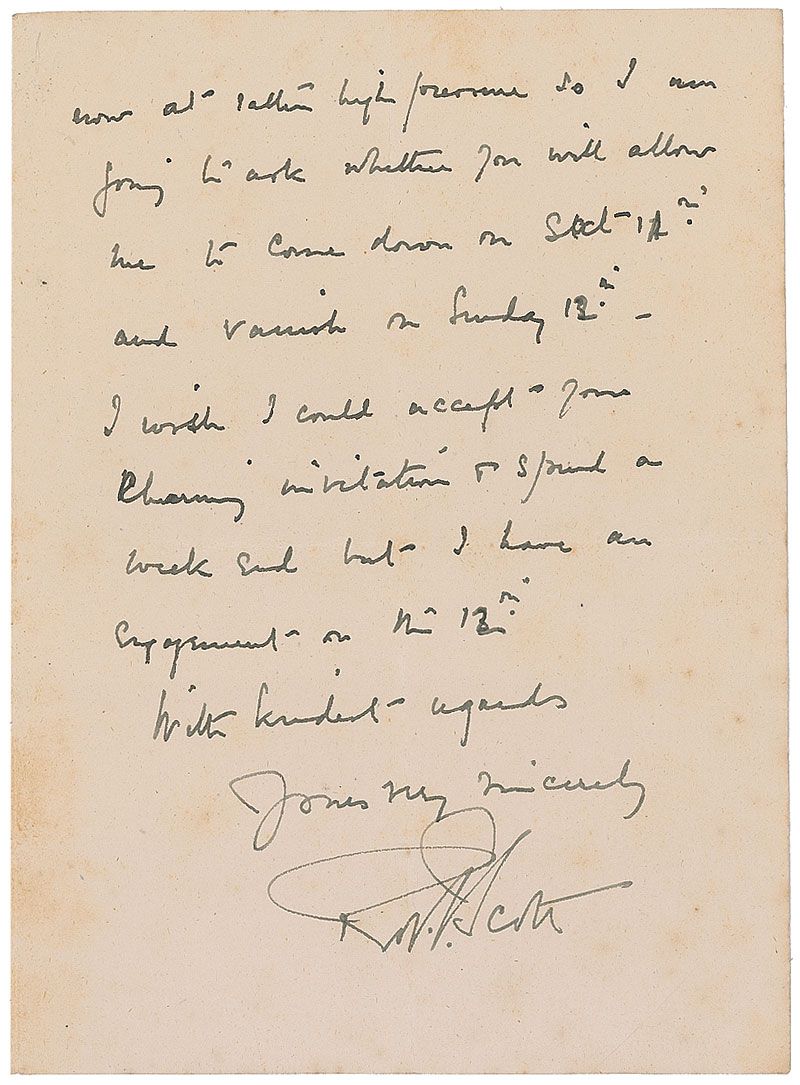 now at rather high pressure so I am
going to ask whether you will allow
me to come down on Sat
and vanish on Sunday 12th –
I wish I could accept your
charming invitation & spend a
week end but I have an
engagement on the 12th
With kindest regards
Yours very sincerely
Scott